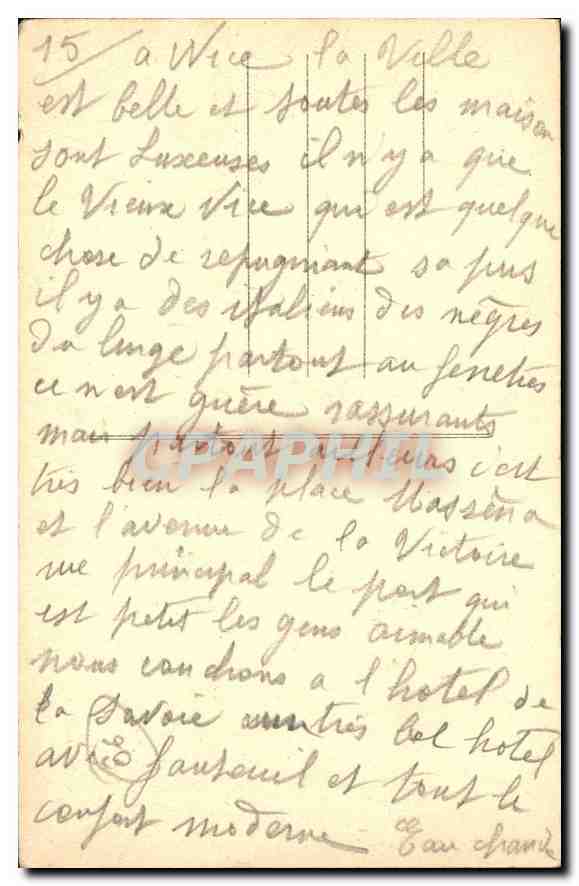 15/ a Nice la Ville
est belle et toutes les maison
sont Luxeuses il n'y a que
le Vieux Nice qui est quelque
chose de repugniant sa pus
il y a des italiens des nègres
du linge partout au fenetres
ce n'est guère rassurants
mais partout ailleurs c'est
très bien la place Masséna
et l'avenue de la Victoire
rue principal le port qui
est petit les gens aimable
nous couchons a l'hotel de
la Savoie un très bel hotel
avec fauteuil et tout le
confort moderne Eau chaude
CPAPHIL